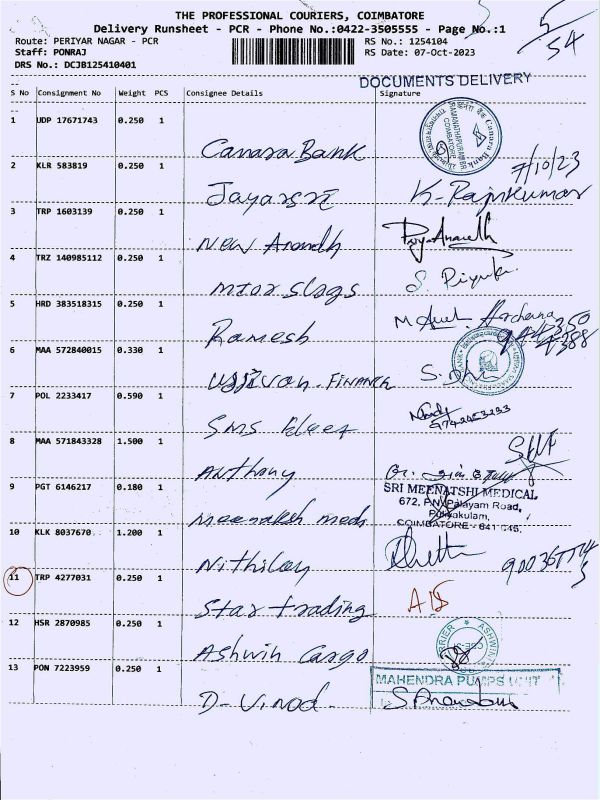 THE PROFESSIONAL COURIERS, COIMBATORE
Delivery Runsheet - PCR - Phone No.:0422-3505555 - Page No.:1
Route: PERIYAR NAGAR - PCR
RS No.: 1254104
Staff: PONRAJ
RS Date: 07-Oct-2023
DRS No.: DCJB125410401
5/54
DOCUMENTS DELIVERY
S No Consignment No Weight PCS Consignee Details Signature
1 UDP 17671743 0.250 1
Canara Bank
7/10/23
2 KLR 583819 0.250 1
K-Rajnkumar
3 TRP 1603139 0.250 1
New Anandh
4 TRZ 140985112 0.250 1
S. Piyuka
5 HRD 383518315 0.250 1
Ramesh
6 MAA 572840015 0.330 1
7 POL 2233417 0.590 1
Sms
8 MAA 571843328 1.500 1
Anthony
9 PGT 6146217 0.180 1
SRI MEENATSHI MEDICAL
672, P.N. Palayam Road,
Puliyakulam,
COIMBATORE - 641 045.
Meenaksh meds
10 KLK 8037670 1.200 1
Nithilay
11 TRP 4277031 0.250 1
Star trading
12 HSR 2870985 0.250 1
Ashwin Cargo
13 PON 7223959 0.250 1
MAHENDRA PUMPS UNIT
D-Vinod.